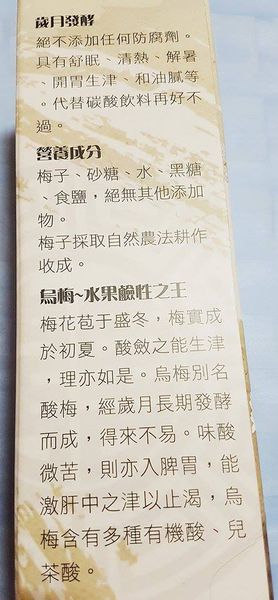 歲月發酵
絕不添加任何防腐劑。
具有舒眠、清熱、解暑
、開胃生津、和油膩等
。代替碳酸飲料再好不
過。
營養成分
梅子、砂糖、水、黑糖
、食鹽，絕無其他添加
物。
梅子採取自然農法耕作
收成。
烏梅~水果鹼性之王
梅花苞于盛冬，梅實成
於初夏。酸斂之能生津
，理亦如是。烏梅別名
酸梅，經歲月長期發酵
而成，得來不易。味酸
微苦，則亦入脾胃，能
激肝中之津以止渴，烏
梅含有多種有機酸、兒
茶酸。